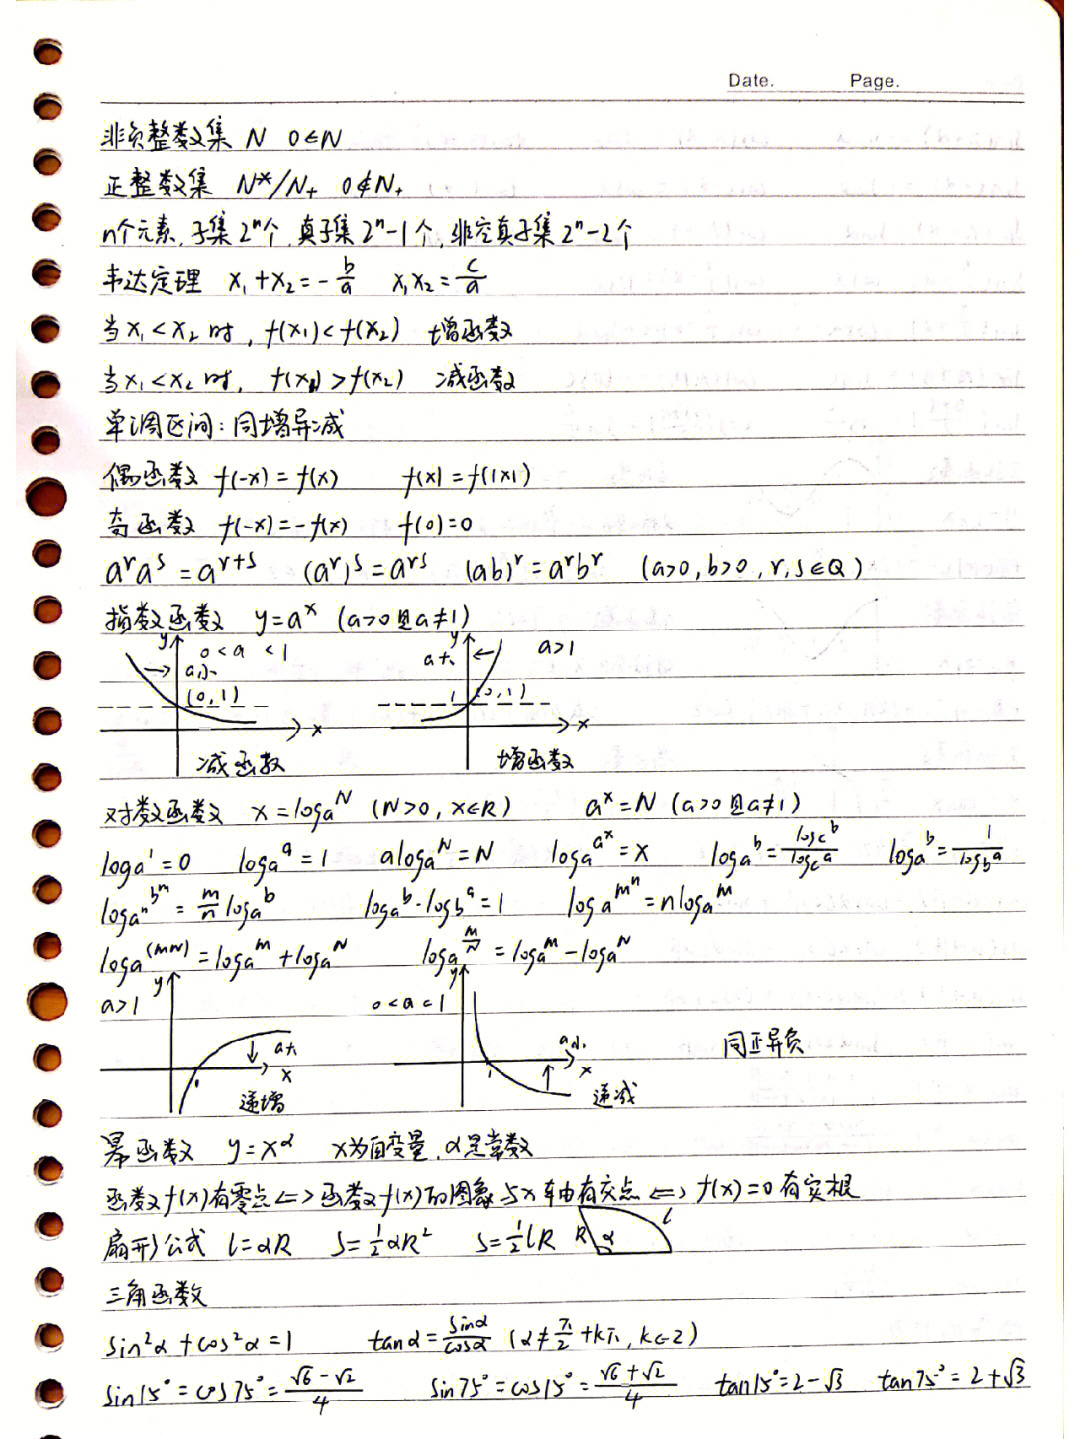 Date. Page.
非负整数集 N 0∈N
正整数集 N*/N₊ 0∉N₊
n个元素,子集2ⁿ个,真子集2ⁿ-1个,非空真子集2ⁿ-2个
韦达定理 x₁+x₂=-b/a x₁x₂=c/a
当x₁<x₂时,f(x₁)<f(x₂) 增函数
当x₁<x₂时,f(x₁)>f(x₂) 减函数
单调区间:同增异减
偶函数 f(-x)=f(x) f(x)=f(|x|)
奇函数 f(-x)=-f(x) f(0)=0
aʳaˢ=aʳ⁺ˢ (aʳ)ˢ=aʳˢ (ab)ʳ=aʳbʳ (a>0,b>0,r,s∈Q)
指数函数 y=aˣ (a>0且a≠1)
y 0<a<1 y a>1
a小 a大
(0,1) 1 (0,1)
x x
减函数 增函数
对数函数 x=logₐN (N>0,x∈R) aˣ=N (a>0且a≠1)
logₐ1=0 logₐa=1 alogₐN=N logₐaˣ=x logₐb=log_c b/log_c a logₐb=1/log_b a
log_aⁿ bᵐ=m/n logₐb logₐb·log_b a=1 logₐmⁿ=nlogₐm
logₐ(MN)=logₐM+logₐN logₐM/N=logₐM-logₐN
a>1 y 0<a<1 y
a大 a小 同正异负
1 x 1 x
递增 递减
幂函数 y=x^α x为自变量,α是常数
函数f(x)有零点⟺函数f(x)的图象与x轴有交点⟺f(x)=0有实根
扇形公式 l=αR S=½αR² S=½lR R α l
三角函数
sin²α+cos²α=1 tanα=sinα/cosα (α≠π/2+kπ,k∈Z)
sin15°=cos75°=(√6-√2)/4 sin75°=cos15°=(√6+√2)/4 tan15°=2-√3 tan75°=2+√3